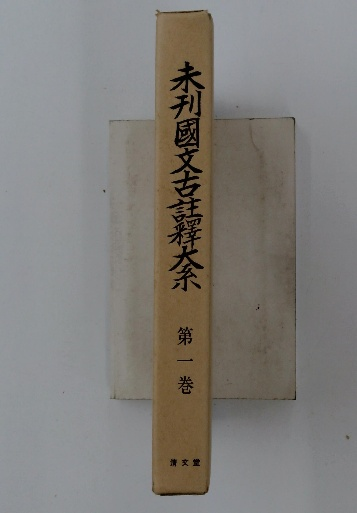 未刊國文古註釋大系
第一巻
清文堂